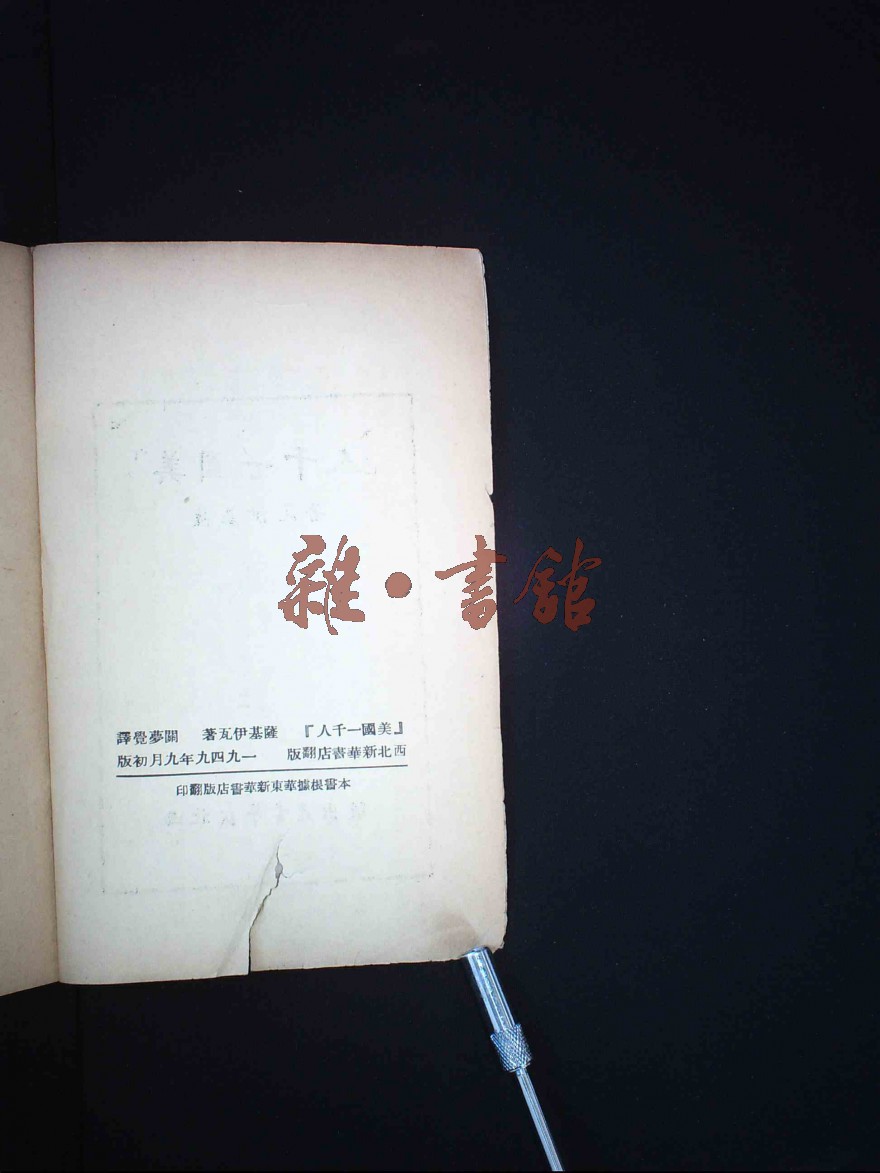 雜·書館
『美國一千人』 薩基伊瓦著 關夢覺譯
西北新華書店翻版 一九四九年九月初版
本書根據華東新華書店版翻印